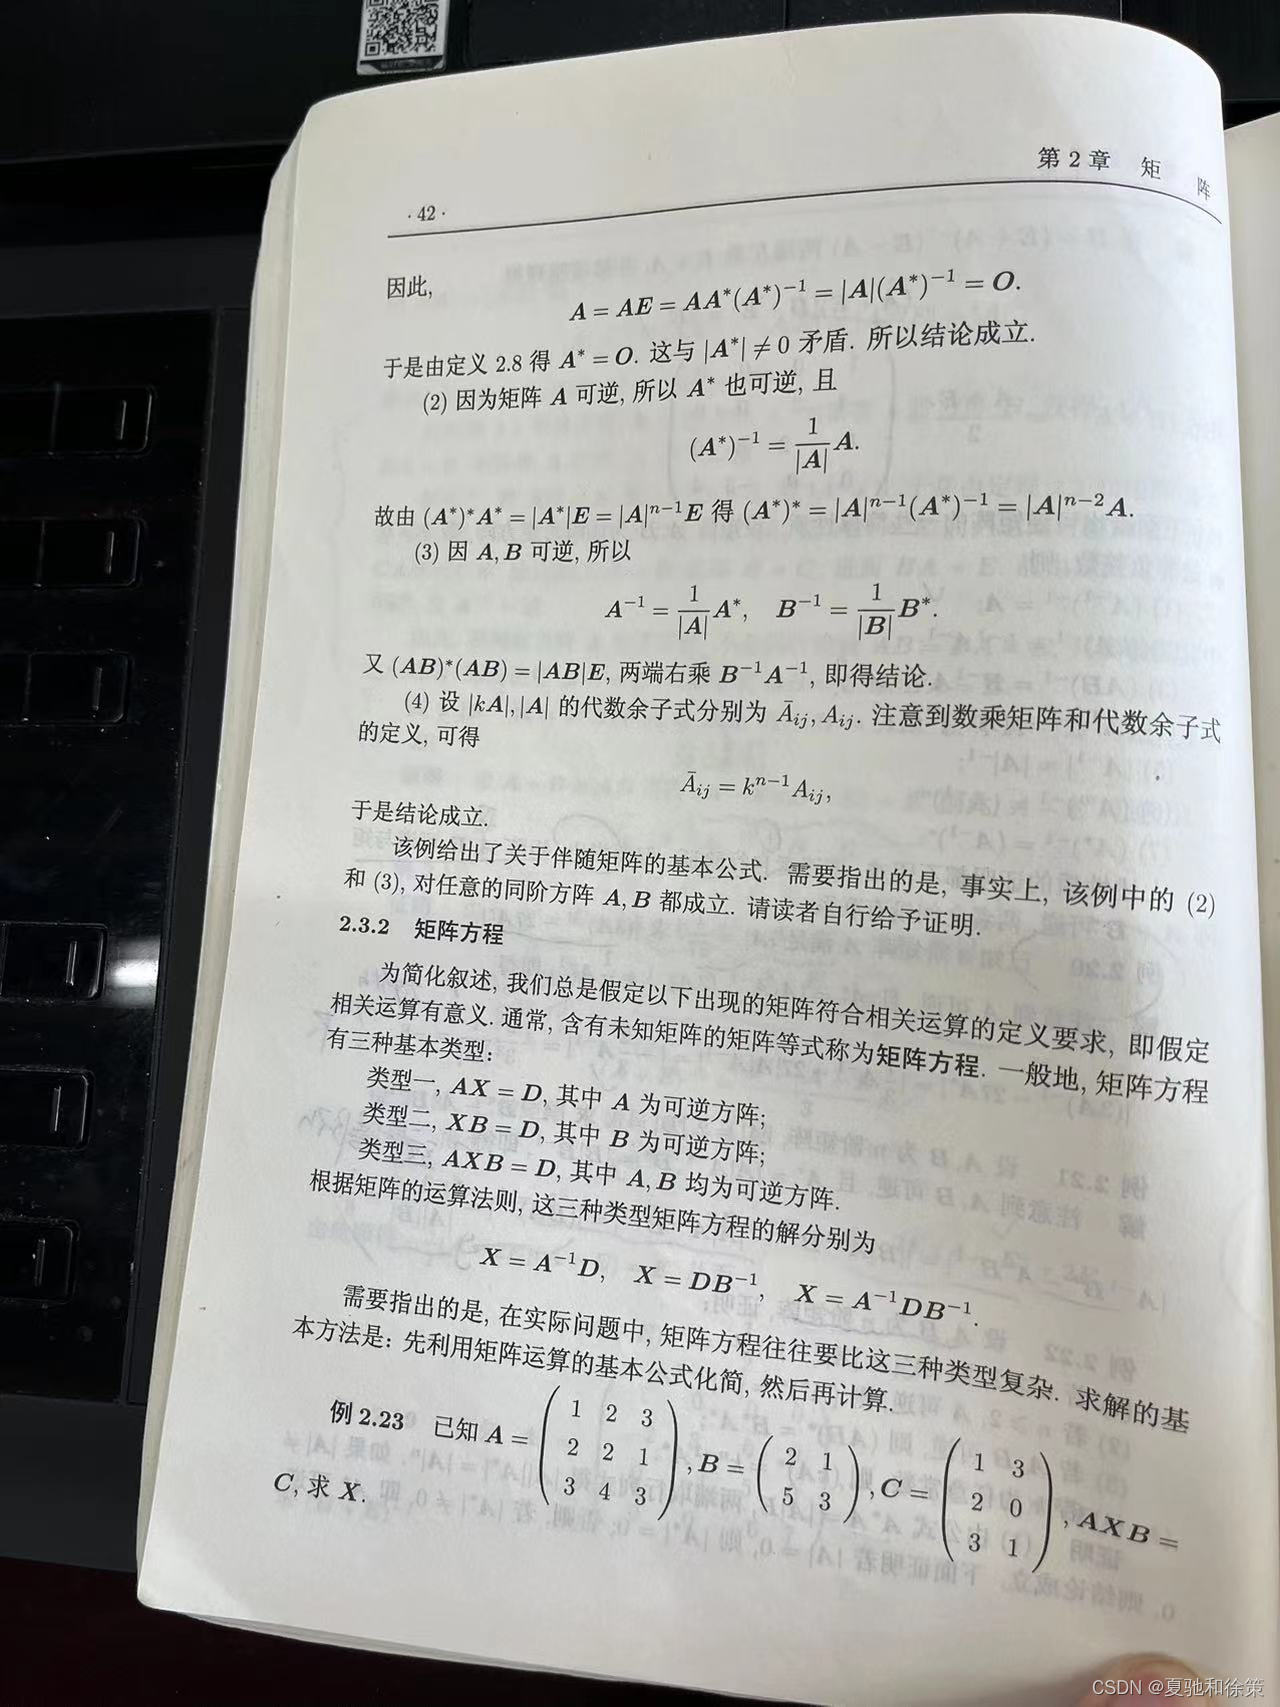 第 2 章 矩 阵
· 42 ·
因此,
A = AE = AA*(A*)⁻¹ = |A|(A*)⁻¹ = O.
于是由定义 2.8 得 A* = O. 这与 |A*| ≠ 0 矛盾. 所以结论成立.
(2) 因为矩阵 A 可逆, 所以 A* 也可逆, 且
(A*)⁻¹ = 1/|A| A.
故由 (A*)*A* = |A*|E = |A|ⁿ⁻¹E 得 (A*)* = |A|ⁿ⁻¹(A*)⁻¹ = |A|ⁿ⁻²A.
(3) 因 A, B 可逆, 所以
A⁻¹ = 1/|A| A*, B⁻¹ = 1/|B| B*.
又 (AB)*(AB) = |AB|E, 两端右乘 B⁻¹A⁻¹, 即得结论.
(4) 设 |kA|, |A| 的代数余子式分别为 Āij, Aij. 注意到数乘矩阵和代数余子式
的定义, 可得
Āij = kⁿ⁻¹Aij,
于是结论成立.
该例给出了关于伴随矩阵的基本公式. 需要指出的是, 事实上, 该例中的 (2)
和 (3), 对任意的同阶方阵 A, B 都成立. 请读者自行给予证明.
2.3.2 矩阵方程
为简化叙述, 我们总是假定以下出现的矩阵符合相关运算的定义要求, 即假定
相关运算有意义. 通常, 含有未知矩阵的矩阵等式称为矩阵方程. 一般地, 矩阵方程
有三种基本类型:
类型一, AX = D, 其中 A 为可逆方阵;
类型二, XB = D, 其中 B 为可逆方阵;
类型三, AXB = D, 其中 A, B 均为可逆方阵.
根据矩阵的运算法则, 这三种类型矩阵方程的解分别为
X = A⁻¹D, X = DB⁻¹, X = A⁻¹DB⁻¹.
需要指出的是, 在实际问题中, 矩阵方程往往要比这三种类型复杂. 求解的基
本方法是: 先利用矩阵运算的基本公式化简, 然后再计算.
例 2.23 已知 A = (1 2 3; 2 2 1; 3 4 3), B = (2 1; 5 3), C = (1 3; 2 0; 3 1), AXB =
C, 求 X.
CSDN @夏驰和徐策